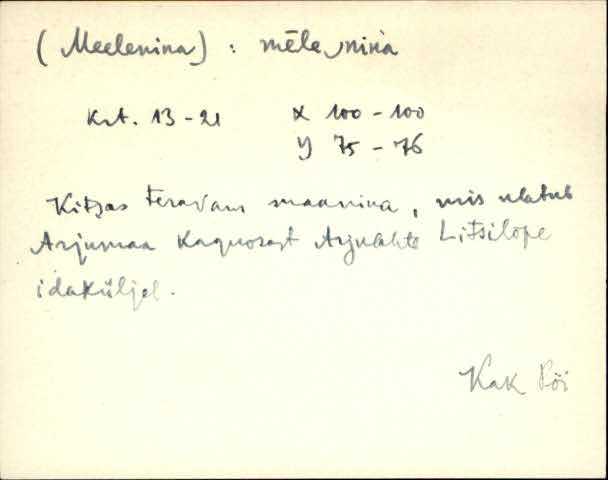 (Meelenina) : mēle‿nina
Krt. 13 - 21 X 100 - 100
Y 75 - 76
Kitsas teravam maanina, mis ulatub
Arjumaa kaguosast Arjulahte Litsilõpe
idaküljel.
Kak Pöi